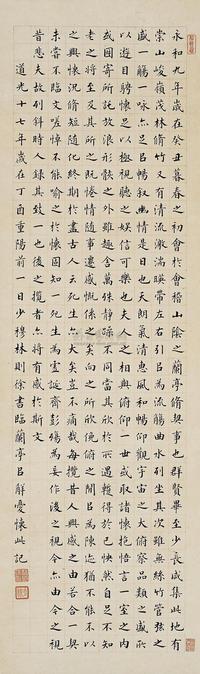 永和九年歲在癸丑暮春之初會於會稽山陰之蘭亭脩禊事也群賢畢至少長咸集此地有
崇山峻嶺茂林脩竹又有清流激湍暎帶左右引㠯為流曲水列坐其次雖無絲竹管弦之
盛一觴一咏亦足㠯暢敘幽情是日也天朗氣清惠風和暢仰觀宇宙之大俯察品類之盛所
以遊目騁懷足以極視聽之娛信可樂也夫人之相與俯仰一世或取諸懷抱悟言一室之內
或因寄所託放浪形骸之外雖趣舍萬殊靜躁不同當其欣於所遇暫得於己怏然自足不知
老之將至及其所之既惓情隨事遷感慨係之矣向之所欣俛仰之間㠯為陳迹猶不能不以
之興懷況脩短隨化終期於盡古人云死生亦大矣豈不痛哉每攬昔人興感之由若合一契
未嘗不臨文嗟悼不能喻之於懷固知一死生為虛誕齊彭殤為妄作後之視今亦由今之視
昔悲夫故列時人錄其致一也後之攬者亦將有感於斯文
道光十七年歲在丁酉重陽前一日少穆林則徐書臨蘭亭㠯解憂懷此記